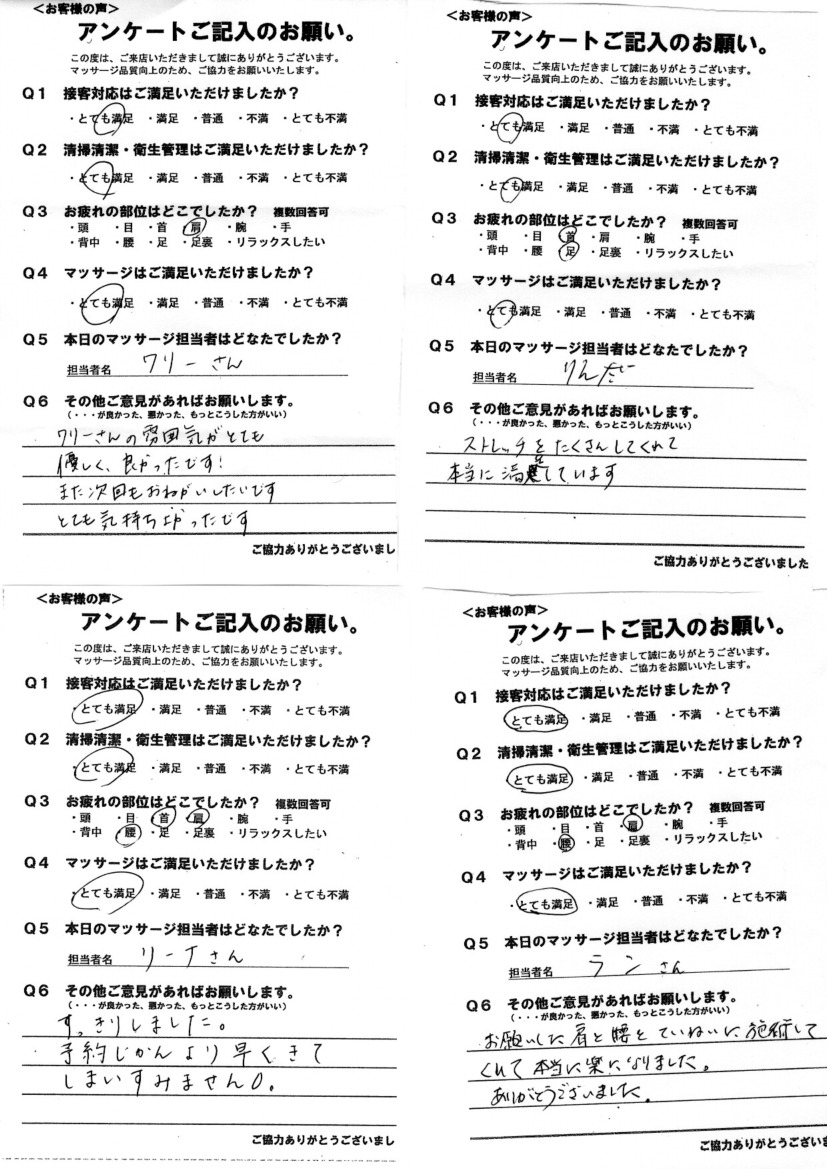 ＜お客様の声＞
アンケートご記入のお願い。
この度は、ご来店いただきまして誠にありがとうございます。
マッサージ品質向上のため、ご協力をお願いいたします。
Q1 接客対応はご満足いただけましたか？
・とても満足 ・満足 ・普通 ・不満 ・とても不満
Q2 清掃清潔・衛生管理はご満足いただけましたか？
・とても満足 ・満足 ・普通 ・不満 ・とても不満
Q3 お疲れの部位はどこでしたか？ 複数回答可
・頭 ・目 ・首 ・肩 ・腕 ・手
・背中 ・腰 ・足 ・足裏 ・リラックスしたい
Q4 マッサージはご満足いただけましたか？
・とても満足 ・満足 ・普通 ・不満 ・とても不満
Q5 本日のマッサージ担当者はどなたでしたか？
担当者名 クリーさん
Q6 その他ご意見があればお願いします。
（・・・が良かった、悪かった、もっとこうした方がいい）
クリーさんの雰囲気がとても
優しく、良かったです！
また次回もおねがいしたいです
とても気持ち よかったです
ご協力ありがとうございまし
＜お客様の声＞
アンケートご記入のお願い。
この度は、ご来店いただきまして誠にありがとうございます。
マッサージ品質向上のため、ご協力をお願いいたします。
Q1 接客対応はご満足いただけましたか？
・とても満足 ・満足 ・普通 ・不満 ・とても不満
Q2 清掃清潔・衛生管理はご満足いただけましたか？
・とても満足 ・満足 ・普通 ・不満 ・とても不満
Q3 お疲れの部位はどこでしたか？ 複数回答可
・頭 ・目 ・首 ・肩 ・腕 ・手
・背中 ・腰 ・足 ・足裏 ・リラックスしたい
Q4 マッサージはご満足いただけましたか？
・とても満足 ・満足 ・普通 ・不満 ・とても不満
Q5 本日のマッサージ担当者はどなたでしたか？
担当者名 りんだ
Q6 その他ご意見があればお願いします。
（・・・が良かった、悪かった、もっとこうした方がいい）
ストレッチをたくさんしてくれて
本当に満足しています
ご協力ありがとうございました
＜お客様の声＞
アンケートご記入のお願い。
この度は、ご来店いただきまして誠にありがとうございます。
マッサージ品質向上のため、ご協力をお願いいたします。
Q1 接客対応はご満足いただけましたか？
・とても満足 ・満足 ・普通 ・不満 ・とても不満
Q2 清掃清潔・衛生管理はご満足いただけましたか？
・とても満足 ・満足 ・普通 ・不満 ・とても不満
Q3 お疲れの部位はどこでしたか？ 複数回答可
・頭 ・目 ・首 ・肩 ・腕 ・手
・背中 ・腰 ・足 ・足裏 ・リラックスしたい
Q4 マッサージはご満足いただけましたか？
・とても満足 ・満足 ・普通 ・不満 ・とても不満
Q5 本日のマッサージ担当者はどなたでしたか？
担当者名 リーナさん
Q6 その他ご意見があればお願いします。
（・・・が良かった、悪かった、もっとこうした方がいい）
すっきりしました。
予約じかんより早くきて
しまいすみません。
ご協力ありがとうございまし
＜お客様の声＞
アンケートご記入のお願い。
この度は、ご来店いただきまして誠にありがとうございます。
マッサージ品質向上のため、ご協力をお願いいたします。
Q1 接客対応はご満足いただけましたか？
・とても満足 ・満足 ・普通 ・不満 ・とても不満
Q2 清掃清潔・衛生管理はご満足いただけましたか？
・とても満足 ・満足 ・普通 ・不満 ・とても不満
Q3 お疲れの部位はどこでしたか？ 複数回答可
・頭 ・目 ・首 ・肩 ・腕 ・手
・背中 ・腰 ・足 ・足裏 ・リラックスしたい
Q4 マッサージはご満足いただけましたか？
・とても満足 ・満足 ・普通 ・不満 ・とても不満
Q5 本日のマッサージ担当者はどなたでしたか？
担当者名 ランさん
Q6 その他ご意見があればお願いします。
（・・・が良かった、悪かった、もっとこうした方がいい）
お願いした肩と腰とていねいに施術して
くれて本当に楽になりました。
ありがとうございました。
ご協力ありがとうございま